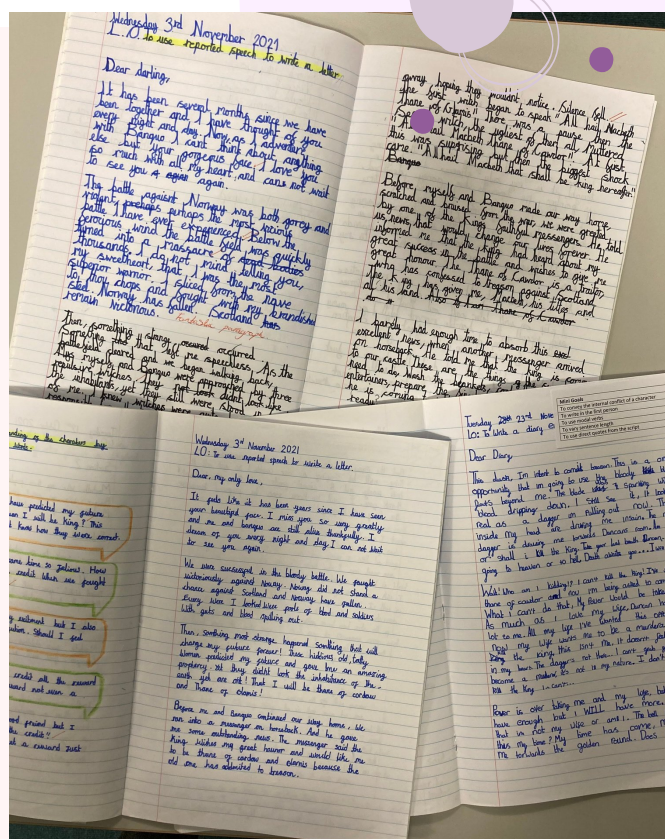 Wednesday 3rd November 2021
L.O To use reported speech to write a letter
Dear darling,
It has been several months since we have
been together and I have thought of you
every night and day. Now, as I adventure
with Banquo I can't think about anything
else but your gorgeous face. I love you
so much with all my heart, and can not wait
to see you again again.
The battle agaisnt Norway was both gorey and
violent, perhaps the most
battle I have ever experienced. Below the
ferocious wind the battle field was quickly
turned into a massacre of
thousands. I do not mind telling you,
my sweetheart, that I was the most
superior warrior. I sliced from the nave
to thou chops and fought with my brandished
steel. Norway has fallen. Scotland has
remain victorious.
paragraph.
Then, something strange occured occurred. As the
Something that left me speechless. As the
cleared and we began walking back,
myself and Banquo were approached by three
witches. They look didnt look like
the inhabitants yet they still were stood
of me. I knew witches were
away hoping they wouldn't notice. Silence fell.
The first witch began to speak "All hail Macbeth
thane of Glamis" There was a pause then the
witch, the ugliest of them all muttered
"All hail Macbeth thane of Cawdor". At first
this was suprising but then the biggest shock
came "All hail Macbeth that shall be king hereafter."
Banquo
Before, myself and Banquo made our way home
scratched and bruised from the war, we were greeted
by one of the Kings faithful messengers. He told
us news that would change our lives forever. He
informed me that the King had heard about my
great success in the battle and wishes to give me
great honour. The thane of Cawdor is a traitor,
who has confessed to treason against Scotland
The King has given me, Macbeth, his titles and
all his land.
I barely had enough time to absort this
excellent news, when another messenger arrived
on horseback. He told me that the king is coming
to our castle. These are the things
need to do, wash the blankets,
entertainers, prepare the
he is coming
ready
Mini Goals
To convey the internal conflict of a character
To write in the first person
To use modal verbs
To vary sentence length
To use direct quotes from the script
of the characters
have predicted my future
I will be King? This
knew how they were correct.
same time so jelous. How
credit when we fought
excitment but I also
Should I feel
credit all the reward
reward not even a
good friend but I
the credit?
a reward just
Wednesday 3rd November 2021
LO: To use reported speech to write a letter.
Dear, my only love,
It feels like it has been years since I have seen
your beautiful face. I miss you so very greatly
and me and banquo are still alive thankfully. I
dream of you every night and day. I can not wait
to see you again.
We were successful in the bloody battle. We fought
victoriously against Norway. Norway did not stand a
chance against Scotland and Norway have fallen.
Every were I looked were pools of blood and soldiers
with guts and blood spilling out.
Then, somthing most strange happend somthing that will
change my future forever! These hidious old, talty
women predicted my future and gave true an amazing
prophecy. yet they didnt look the inhabitance of the
earth yet are ont! That I will be thane of cordow
and thane of Glamis!
Before me and Banquo continued our way home, We
ran into a messenger on horseback. And he gave
me some outstanding news. The messenger said the
King wishes my great hounor and would like me
to be thane of cordow and Glamis because the
old one has addmited to treason.
Tuesday 23rd Nove
LO: To write a diary e
Dear Diary,
This dusk, Im intent to comit treason. This is a
opportunity that im going to use the bloody
floats beyond me. The blade Sparking
blood dripping down. I still see it, it look
real as a dagger im pulling out now. The
inside my head are driving me insane. The
dagger is driving me towards Duncans room
or shall I kill the King.
going to heaven or to hell.
Wait! Who am I kidding!? I can't kill the King! I've
thane of cawdor and now im being asked to
What? I can't do that, My honor would be take
As much as I love my wife, Duncan
lot to me. All my life I've wanted this
now! my wife wants me to be a murdere
king this isn't me, it doesnt
in my heart. The dagger is not there. I can't
become a murderer it's not in my nature. I don't
kill the King I can't....
Power is over taking me and my life, but
have enough but I WILL have more.
that im not my wife or am I. The bell
this my time? My time has come,
me towards the golden round. Does